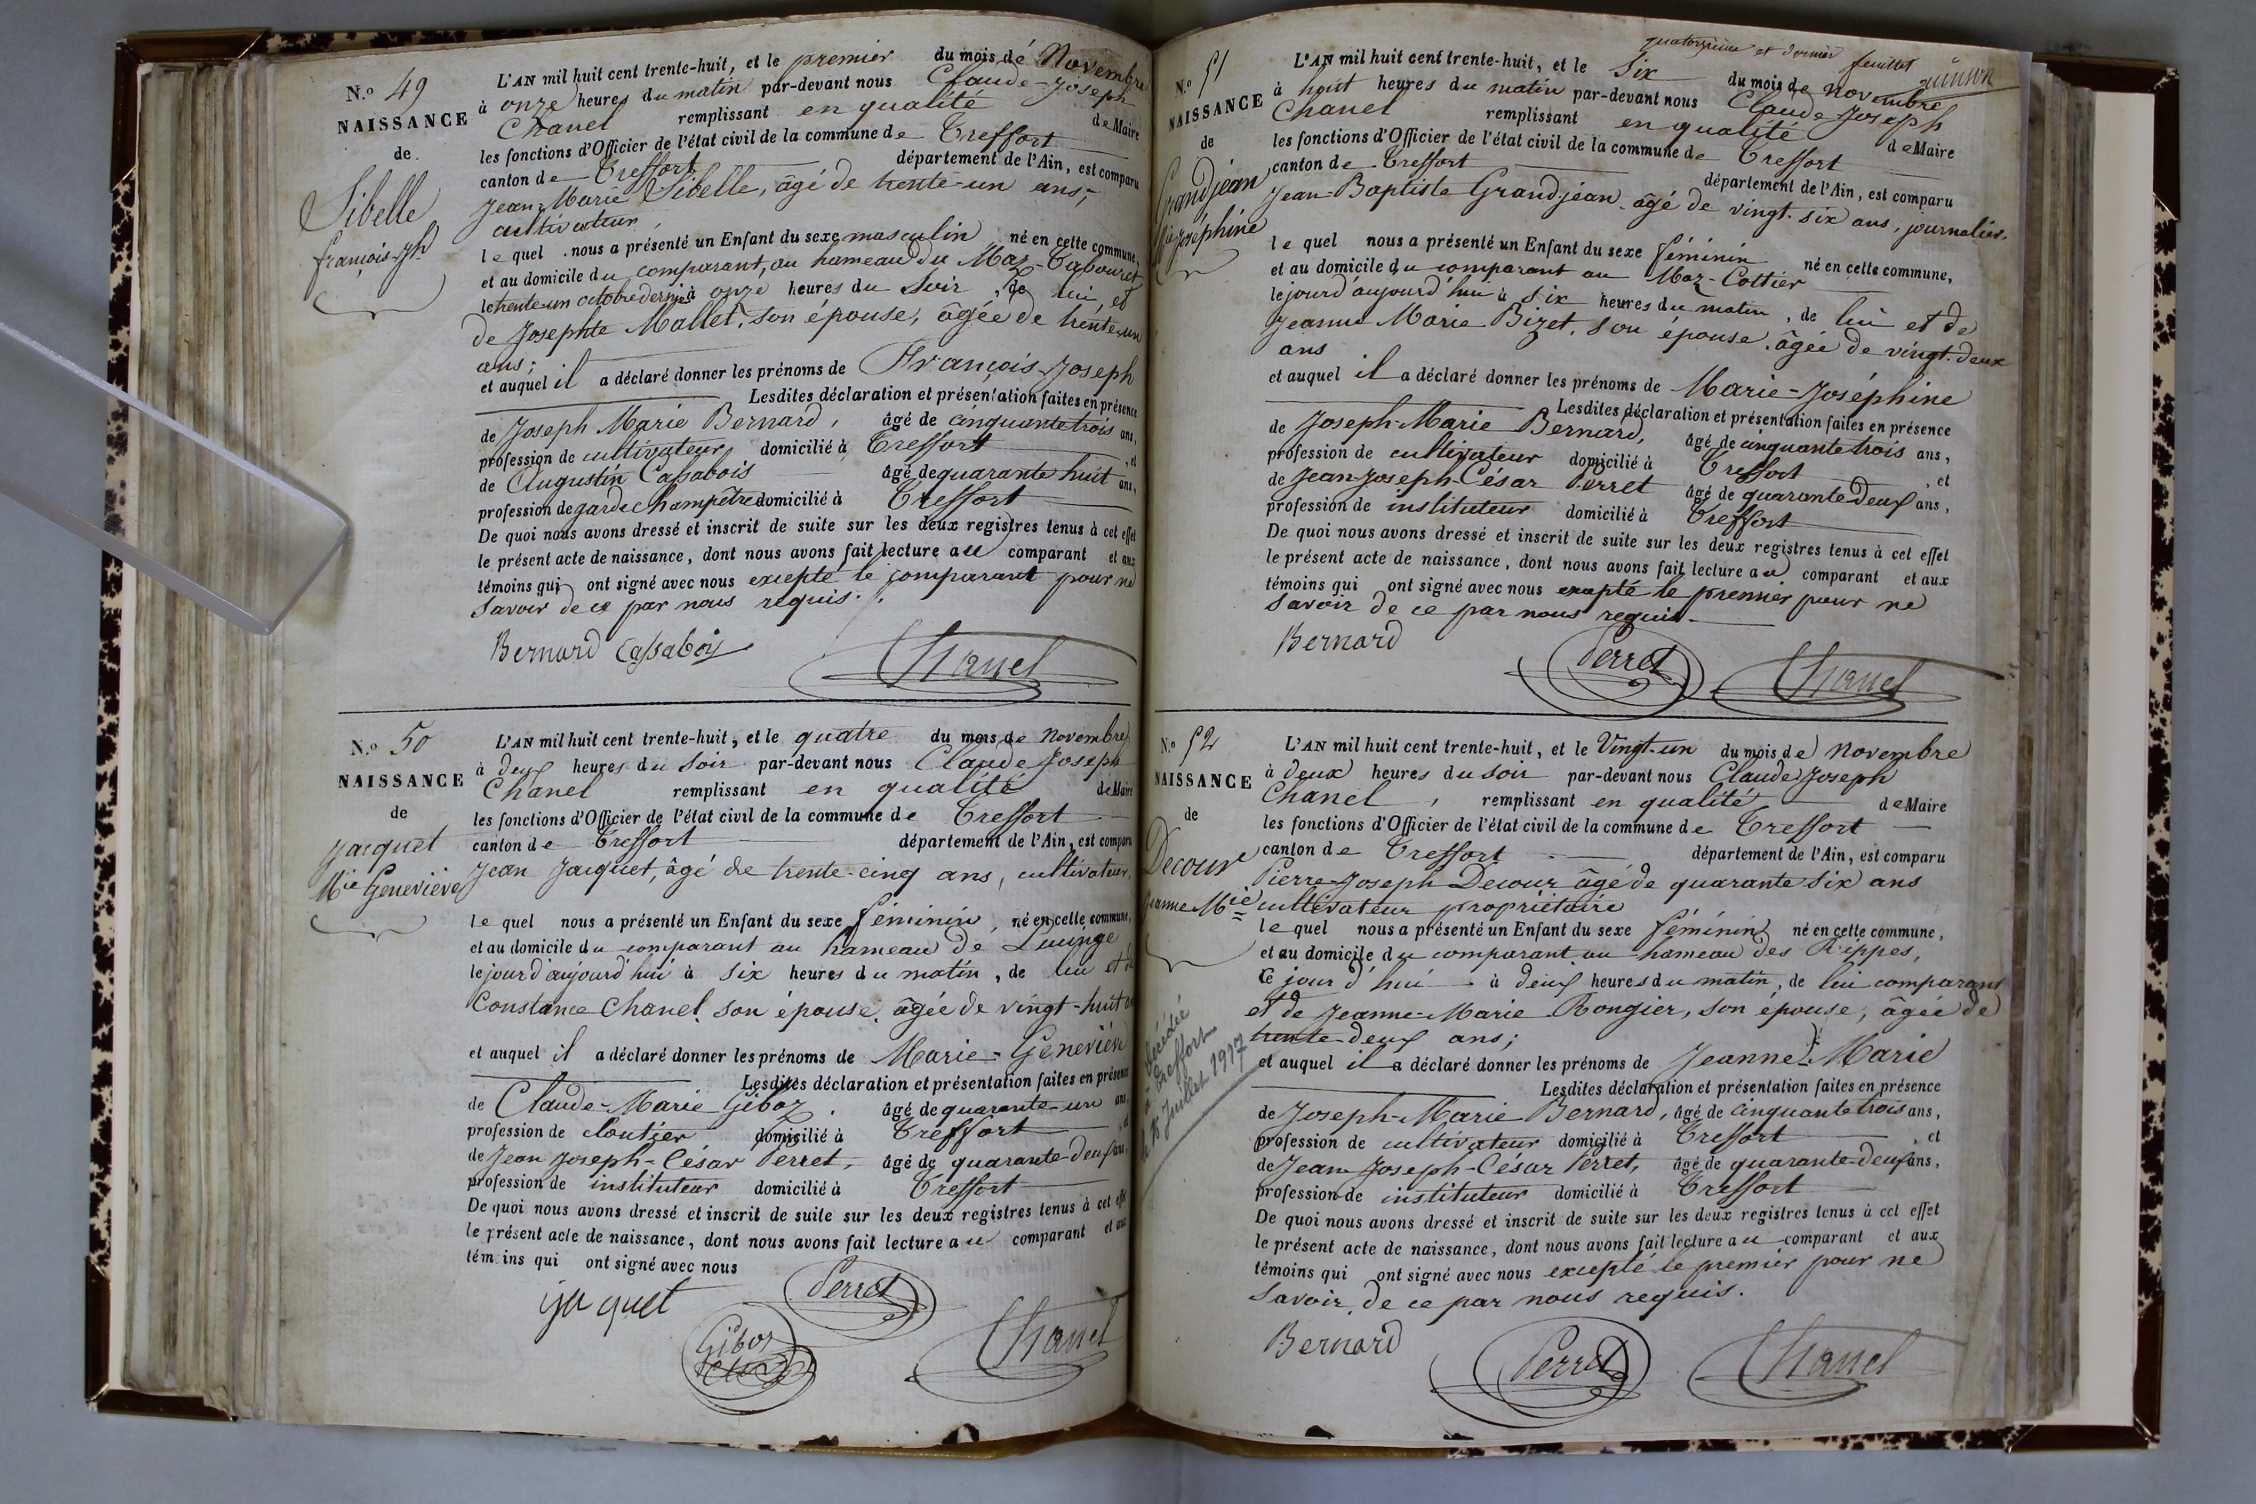 N.º 49
NAISSANCE
de
Sibelle
françois-jph
L'AN mil huit cent trente-huit, et le premier du mois de Novembre
à onze heures du matin par-devant nous Claude-Joseph
Chanel remplissant en qualité de Maire
les fonctions d'Officier de l'état civil de la commune de Treffort
canton de Treffort département de l'Ain, est comparu
Jean-Marie Sibelle, âgé de trente-un ans,
cultivateur
le quel nous a présenté un Enfant du sexe masculin né en cette commune,
et au domicile du comparant, au hameau du Maz-Tabouret
le trente-un octobre dernier à onze heures du soir, de lui, et
de Josephte Mallet, son épouse, âgée de trente-un
ans;
et auquel il a déclaré donner les prénoms de François-Joseph
Lesdites déclaration et présentation faites en présence
de Joseph Marie Bernard, âgé de cinquante trois ans,
profession de cultivateur domicilié à Treffort, et
de Augustin Cassabois âgé de quarante huit ans,
profession de garde champêtre domicilié à Treffort
De quoi nous avons dressé et inscrit de suite sur les deux registres tenus à cet effet
le présent acte de naissance, dont nous avons fait lecture au comparant et aux
témoins qui ont signé avec nous excepté le comparant pour ne
savoir de ce par nous requis.
Bernard Cassabois Chanel
N.º 50
NAISSANCE
de
Jacquet
Mie Geneviève
L'AN mil huit cent trente-huit, et le quatre du mois de novembre
à deux heures du soir par-devant nous Claude Joseph
Chanel remplissant en qualité de Maire
les fonctions d'Officier de l'état civil de la commune de Treffort
canton de Treffort département de l'Ain, est comparu
Jean Jacquet, âgé de trente-cinq ans, cultivateur,
le quel nous a présenté un Enfant du sexe féminin, né en cette commune,
et au domicile du comparant au hameau de Lucinge
le jour d'aujourd'hui à six heures du matin, de lui et de
Constance Chanel, son épouse, âgée de vingt-huit
et auquel il a déclaré donner les prénoms de Marie-Geneviève
Lesdites déclaration et présentation faites en présence
de Claude-Marie Giboz, âgé de quarante-un ans,
profession de cloutier domicilié à Treffort, et
de Jean Joseph-César Perret, âgé de quarante-deux ans,
profession de instituteur domicilié à Treffort
De quoi nous avons dressé et inscrit de suite sur les deux registres tenus à cet effet
le présent acte de naissance, dont nous avons fait lecture au comparant et aux
témoins qui ont signé avec nous
Jacquet Perret
Giboz Chanel
quatorzième et dernier feuillet
N.º 51
NAISSANCE
de
Grandjean
Mie Joséphine
L'AN mil huit cent trente-huit, et le Six du mois de novembre
à huit heures du matin par-devant nous Claude Joseph
Chanel remplissant en qualité de Maire
les fonctions d'Officier de l'état civil de la commune de Treffort
canton de Treffort département de l'Ain, est comparu
Jean-Baptiste Grandjean âgé de vingt-six ans, journalier.
le quel nous a présenté un Enfant du sexe féminin né en cette commune,
et au domicile du comparant au Maz-Cottier
le jour d'aujourd'hui à six heures du matin, de lui et de
Jeanne Marie Bizet, son épouse, âgée de vingt-deux
ans
et auquel il a déclaré donner les prénoms de Marie-Joséphine
Lesdites déclaration et présentation faites en présence
de Joseph-Marie Bernard, âgé de cinquante trois ans,
profession de cultivateur domicilié à Treffort, et
de Jean-Joseph-César Perret âgé de quarante-deux ans,
profession de instituteur domicilié à Treffort
De quoi nous avons dressé et inscrit de suite sur les deux registres tenus à cet effet
le présent acte de naissance, dont nous avons fait lecture au comparant et aux
témoins qui ont signé avec nous excepté le premier pour ne
savoir de ce par nous requis.
Bernard Perret Chanel
N.º 52
NAISSANCE
de
Decour
Jeanne Mie
Décédée
à Treffort
Juillet 1917
L'AN mil huit cent trente-huit, et le Vingt-un du mois de novembre
à deux heures du soir par-devant nous Claude Joseph
Chanel, remplissant en qualité de Maire
les fonctions d'Officier de l'état civil de la commune de Treffort
canton de Treffort département de l'Ain, est comparu
Pierre-Joseph Decour âgé de quarante six ans
cultivateur propriétaire
le quel nous a présenté un Enfant du sexe féminin né en cette commune,
et au domicile du comparant au hameau des Rippes,
ce jour d'hui à deux heures du matin, de lui comparant
et de Jeanne-Marie Rongier, son épouse, âgée de
trente-deux ans;
et auquel il a déclaré donner les prénoms de Jeanne-Marie
Lesdites déclaration et présentation faites en présence
de Joseph-Marie Bernard, âgé de cinquante trois ans,
profession de cultivateur domicilié à Treffort, et
de Jean Joseph-César Perret, âgé de quarante-deux ans,
profession de instituteur domicilié à Treffort
De quoi nous avons dressé et inscrit de suite sur les deux registres tenus à cet effet
le présent acte de naissance, dont nous avons fait lecture au comparant et aux
témoins qui ont signé avec nous excepté le premier pour ne
savoir, de ce par nous requis.
Bernard Perret Chanel